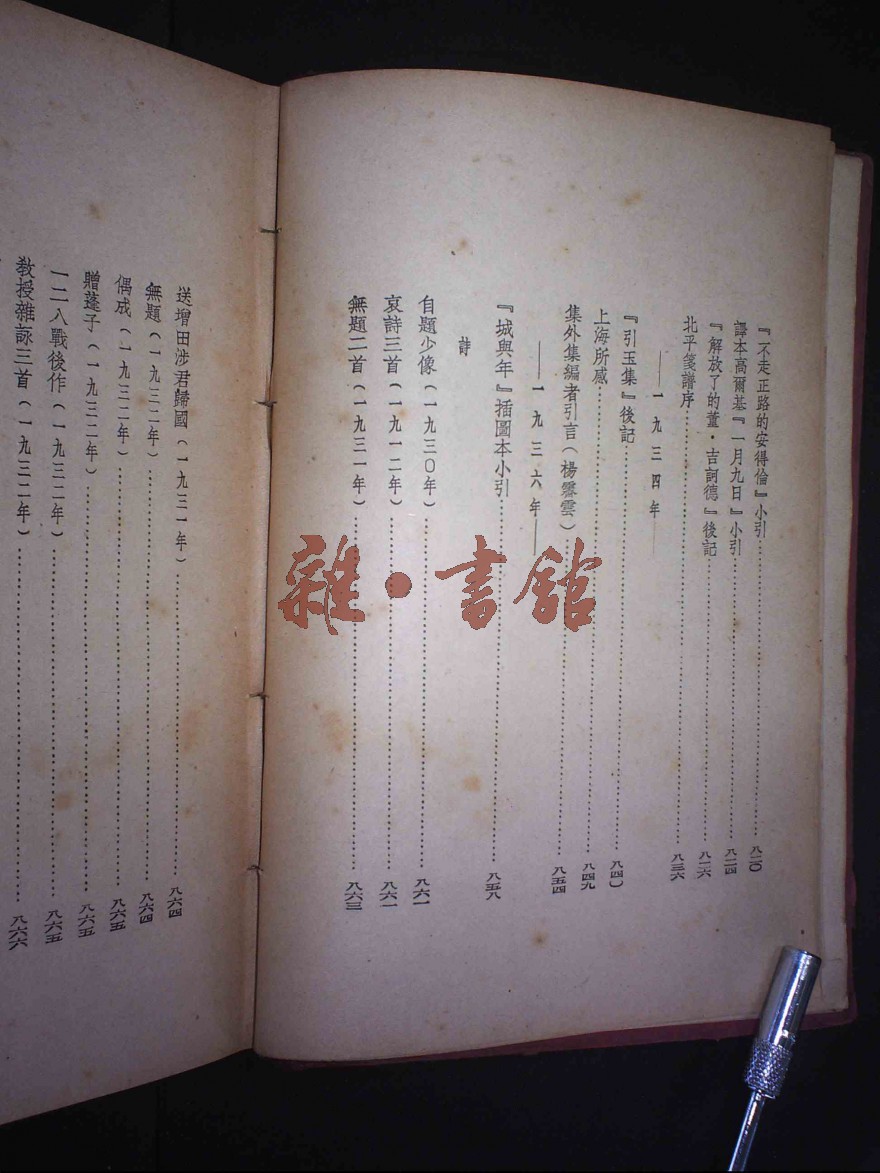 『不走正路的安得倫』小引……八二〇
譯本高爾基『一月九日』小引……八二四
『解放了的董·吉訶德』後記……八二六
北平箋譜序……八三六
——一九三四年——
『引玉集』後記……八四〇
上海所感……八四九
集外集編者引言(楊霽雲)……八五四
——一九三六年——
『城與年』插圖本小引……八五八
詩
自題少像(一九三〇年)……八六一
哀詩三首(一九一二年)……八六一
無題二首(一九三一年)……八六三
送增田涉君歸國(一九三一年)……八六四
無題(一九三二年)……八六四
偶成(一九三二年)……八六五
贈蓬子(一九三二年)……八六五
一二八戰後作(一九三二年)……八六五
教授雜詠三首(一九三二年)……八六六
雜·書館